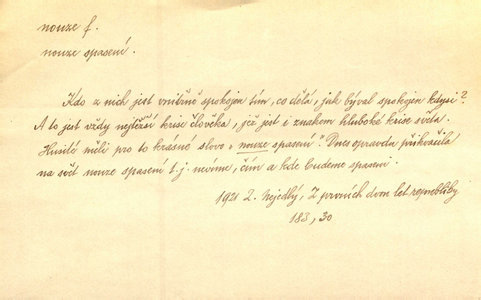 nouze f.
nouze spasení.
Kdo z nich jest vnitřně spokojen tím, co dělá, jak býval spokojen kdysi?
A to jest vždy nejtěžší krise člověka, jež jest i znakem hluboké krise světa.
Husité měli pro to krásné slovo „nouze spasení." Dnes opravdu přikvačila
na svět nouze spasení t.j. nevíme, čím a kde budeme spaseni.
1921 Z. Nejedlý, Z prvních dvou let republiky
183, 30